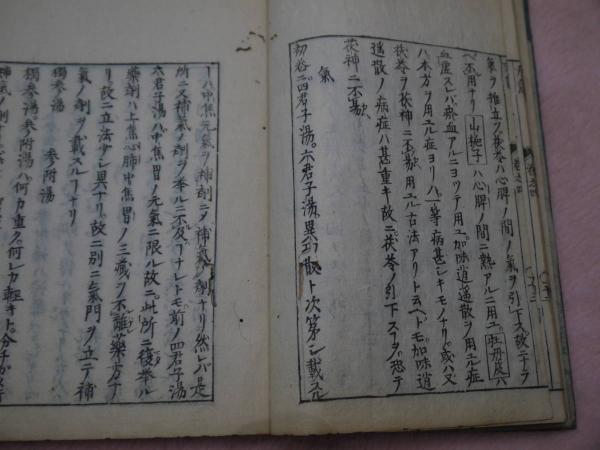 氣ヲ推立ツ茯苓ハ心脾ノ間ノ氣ヲ引下ス故ニテラ
ベ不用ナリ山梔子ハ心脾ノ間ニ熱アルニ用ユ牡丹皮ハ
血虚スレバ瘀血アルニヨツテ用ユ加味逍遥散ヲ用ユル症
ハ本方ヲ用ユル症ヨリハ一等病甚シキモノナリ或ハ又
茯苓ヲ茯神ニ不換用ユル古法アリト云ヘトモ加味逍
遥散ノ病症ハ甚重キ故ニ茯苓ノ引下スヲ恐テ
茯神ニ不換
氣
四君子湯六君子湯異功散ト次第シ載スル
丨ハ中焦元氣ヲ補剤ニメ補氣ノ剤ナリ然レバ是
所ニ又補氣ノ剤ヲ挙ルニ不及丨ナレトモ前ノ四君子湯
六君子湯ハ中焦胃ノ元氣ニ限ル故ニ此所ニ復挙ル
藥剤ハ上焦心肺中焦胃ノ三臓ヲ不離藥方ナ
リ故ニ立法少シ異ナリ故ニ別ニ氣門ヲ立テ補
氣ノ剤ヲ載スルナリ
獨参湯 参附湯
獨参湯参附湯ハ何カ重ク何レカ輕キト